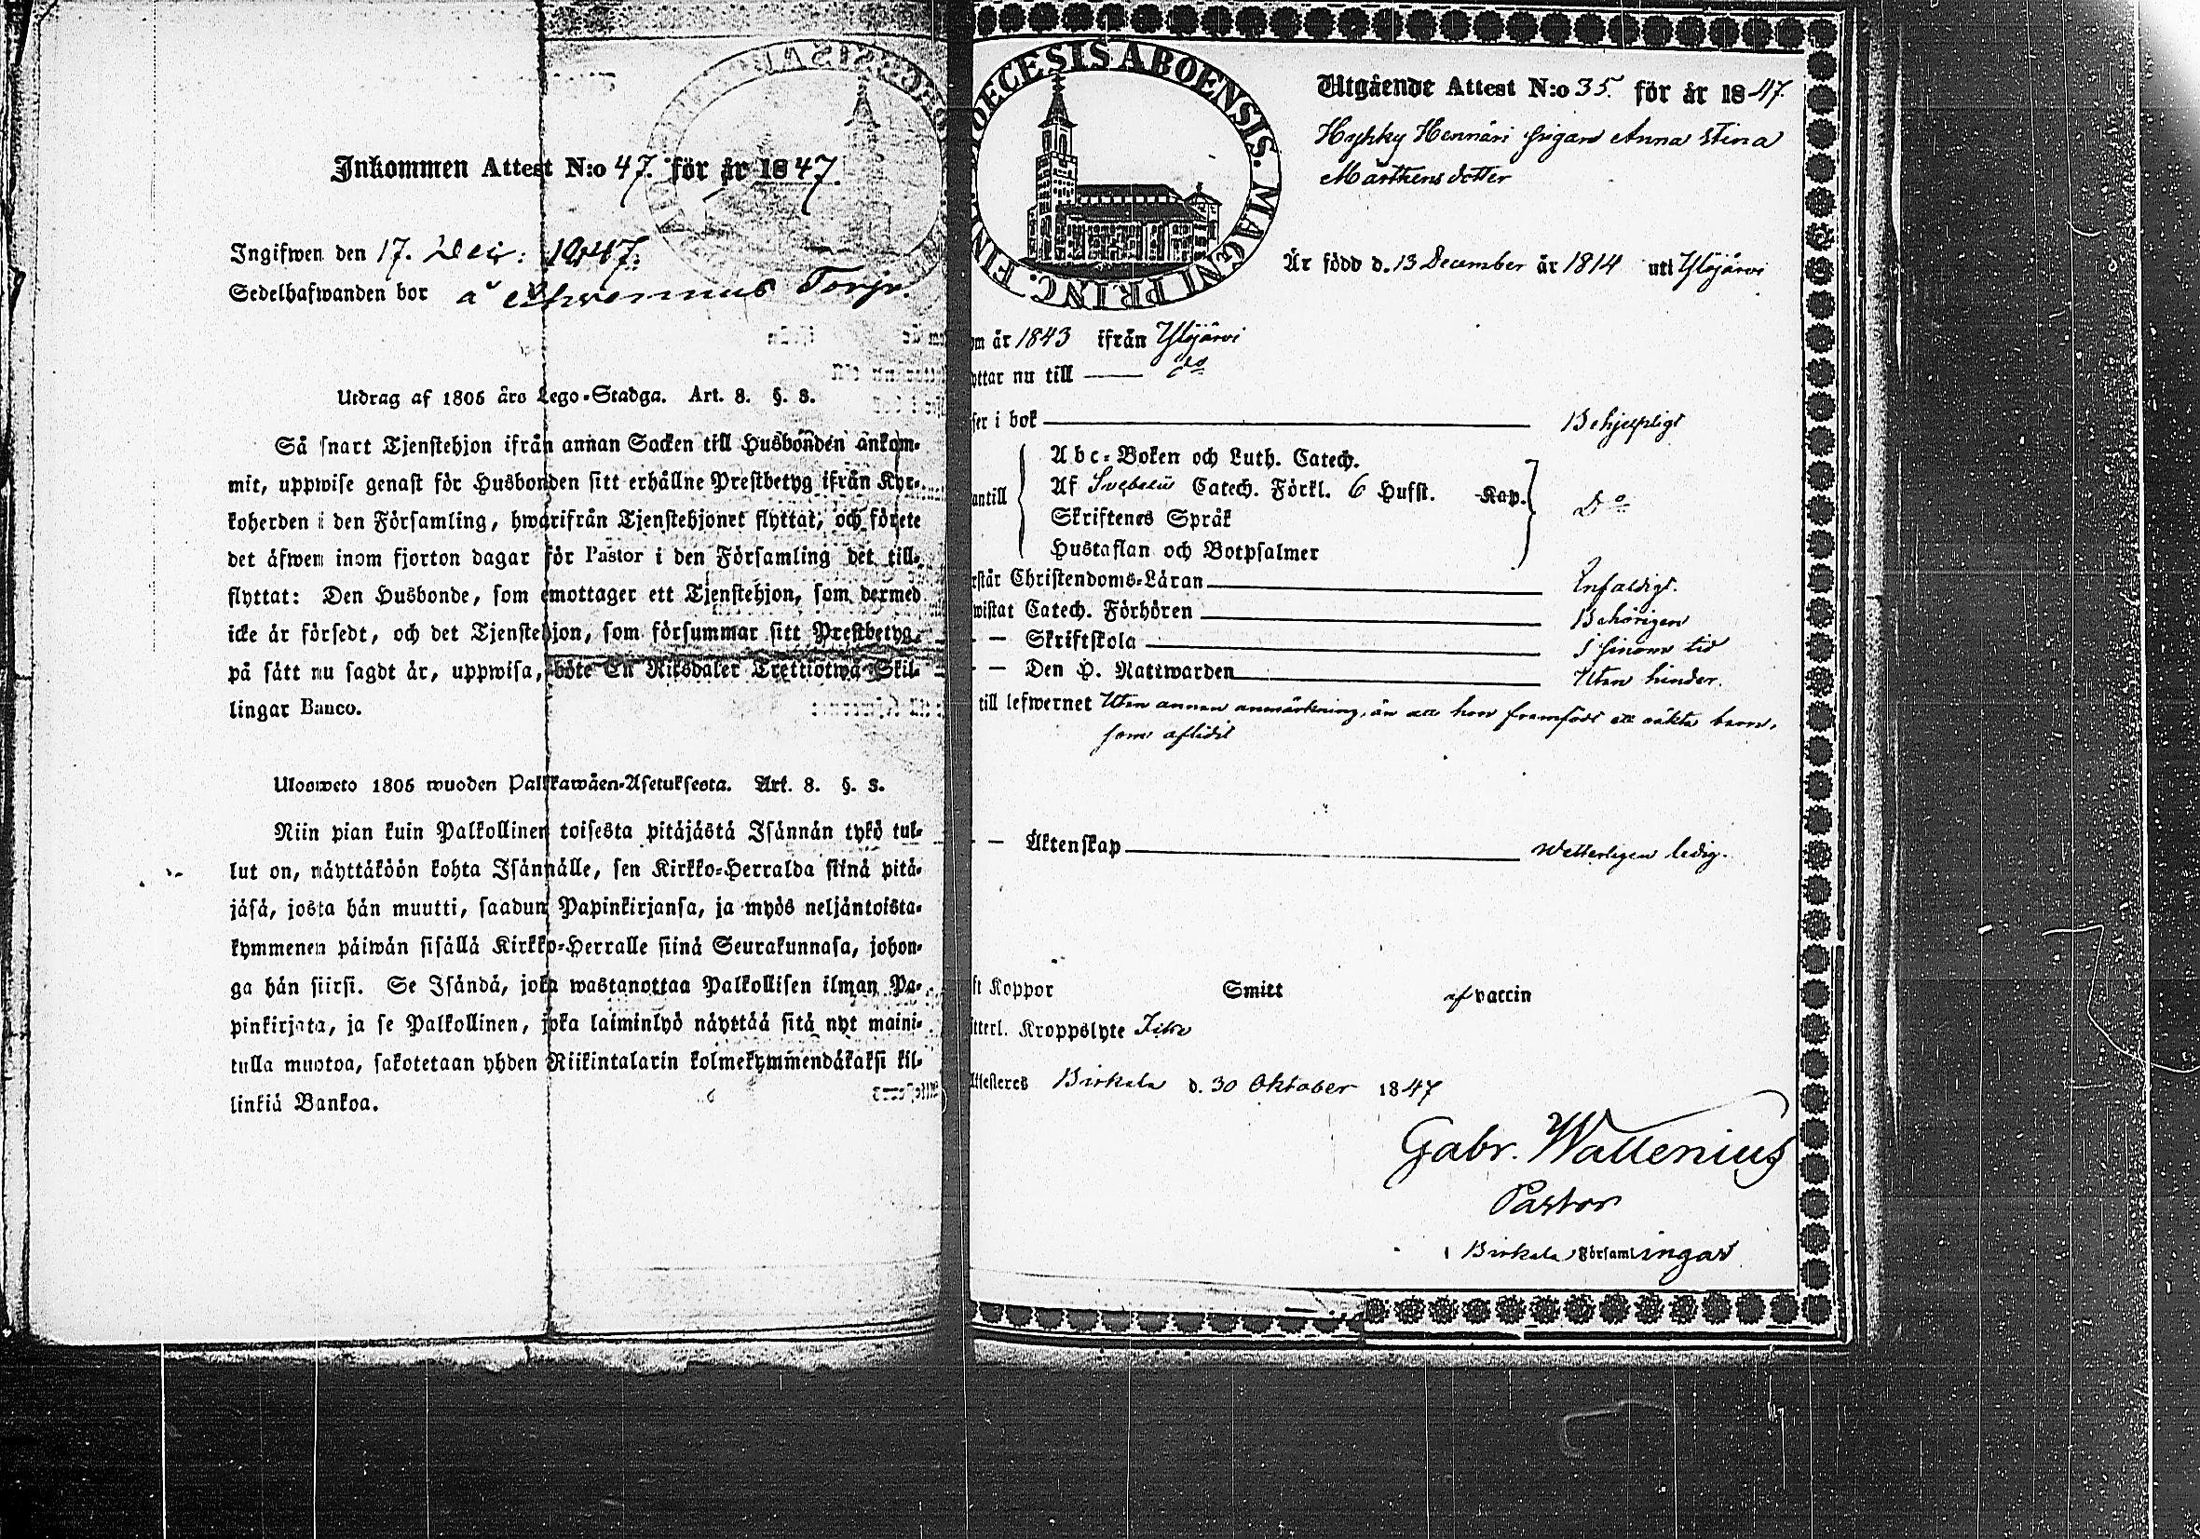 Inkommen Attest N:o 47. för år 1847.
Ingifwen den 17. Dec: 1847.
Sedelhafwanden bor å Ahvennus Torp.
Utdrag af 1805 års Lego-Stadga. Art. 8. §. 3.
Så snart Tjenstehjon ifrån annan Socken till Husbonden ankom-
mit, uppwise genast för Husbonden sitt erhållne Prestbetyg ifrån Kyr-
koherden i den Församling, hwarifrån Tjenstehjonet flyttat, och förete
det äfwen inom fjorton dagar för Pastor i den Församling det till-
flyttat: Den Husbonde, som emottager ett Tjenstehjon, som dermed
icke är försedt, och det Tjenstehjon, som försummar sitt Prestbetyg,
på sätt nu sagdt är, uppwisa, böte En Riksdaler Trettiotwå Skil-
lingar Banco.
Ulosweto 1805 wuoden Palkkawäen-Asetuksesta. Art. 8. §. 3.
Niin pian kuin Palkollinen toisesta pitäjästä Isännän tykö tul-
lut on, näyttäköön kohta Isännälle, sen Kirkko-Herralda siinä pitä-
jäsä, josta hän muutti, saadun Papinkirjansa, ja myös neljäntoista-
kymmenen päiwän sisällä Kirkko-Herralle siinä Seurakunnasa, johon-
ga hän siirsi. Se Isändä, joka wastanottaa Palkollisen ilman Pa-
pinkirjata, ja se Palkollinen, joka laiminlyö näyttää sitä nyt maini-
tulla muotoa, sakotetaan yhden Riikintalarin kolmekymmendäkaksi kil-
linkiä Bankoa.
DIOECESIS ABOENSIS. MAGNI PRINC. FINL.
Utgående Attest N:o 35. för år 1847.
Hyhky Hennäri pigan Anna Stina
Mårthensdotter
Är född d. 13 December år 1814 uti Ylöjärvi
om år 1843 ifrån Ylöjärvi
yttar nu till do
ser i bok Behjelpligt
Abc-Boken och Luth. Catech.
antill Af Svebelii Catech. Förkl. 6 Hufst. Kap. Do
Skriftenes Språk
Hustaflan och Botpsalmer
rstår Christendoms-Läran Enfaldigt.
wistat Catech. Förhören Behörigen
- - Skriftskola i sinom tid
- - Den H. Nattwarden Utan hinder.
till lefwernet Utan annan anmärkning, än att hon framfödt ett oäkta barn,
som aflidit
- - Äktenskap Wetterligen ledig.
ft Koppor Smitt af vaccin
itterl. Kroppslyte Icke
Attesteres Birkala d. 30 Oktober 1847
Gabr. Wallenius
Pastor
i Birkala Församlingar